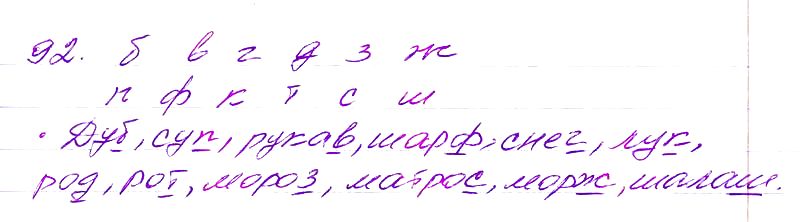 92. б в г д з ж
п ф к т с ш
Дуб, суп, рукав, шарф, снег, лук,
род, рот, мороз, матрос, морж, шалаш.